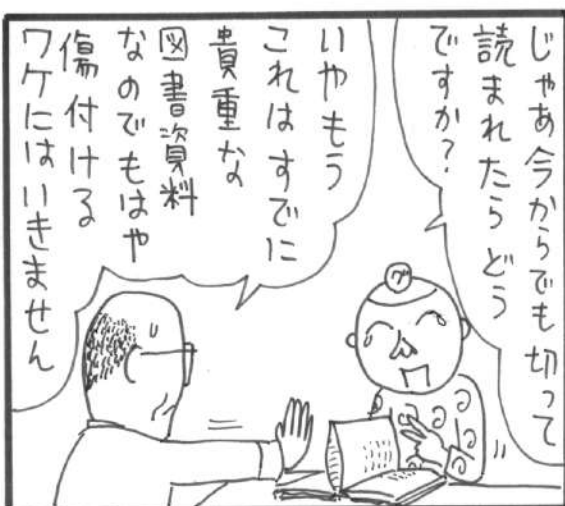 じゃあ今からでも切って
読まれたらどう
ですか?
いやもう
これはすでに
貴重な
図書資料
なのでもはや
傷付ける
ワケにはいきません
グ